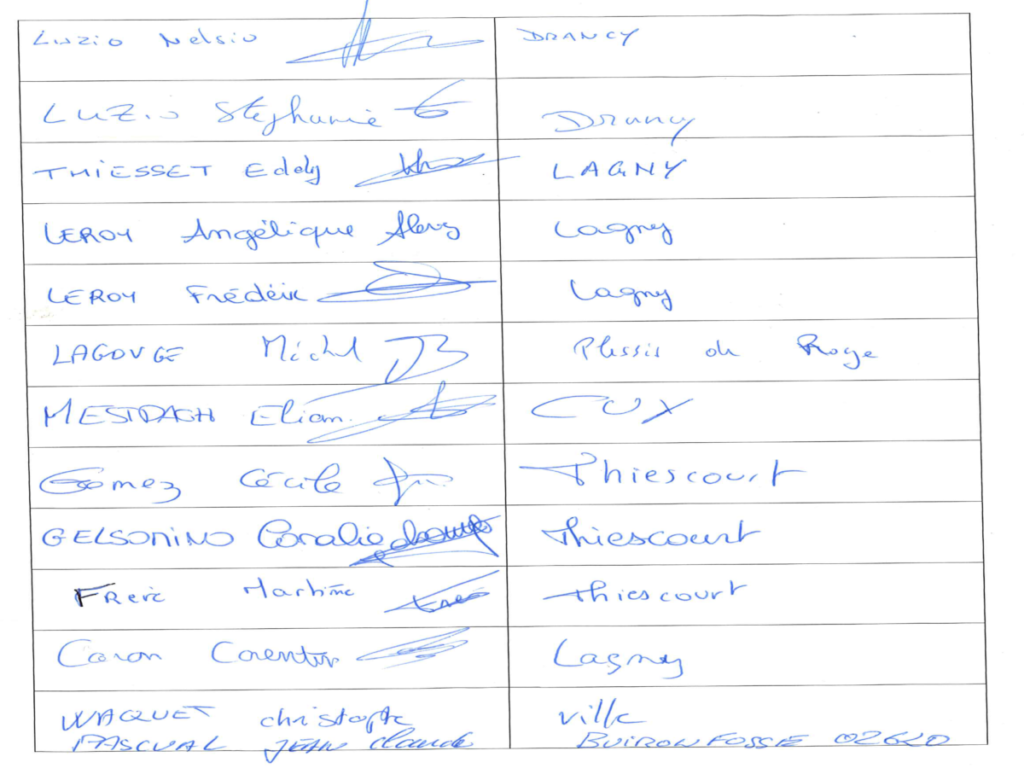 Luzio Nelsio DRANCY
LUZio Stephanie Drancy
THIESSET Eddy LAGNY
LEROY Angélique Lagny
LEROY Frédéric Lagny
LAGOUGE Michel Plessis de Roye
MESTDAGH Eliane CUY
Gomez Cécile Thiescourt
GELSOMINO Coralie Thiescourt
FRere Martine Thiescourt
Caron Corentin Lagny
WAQUET christophe ville
PASCUAL JEAN Claude BUIRONFOSSE 02620